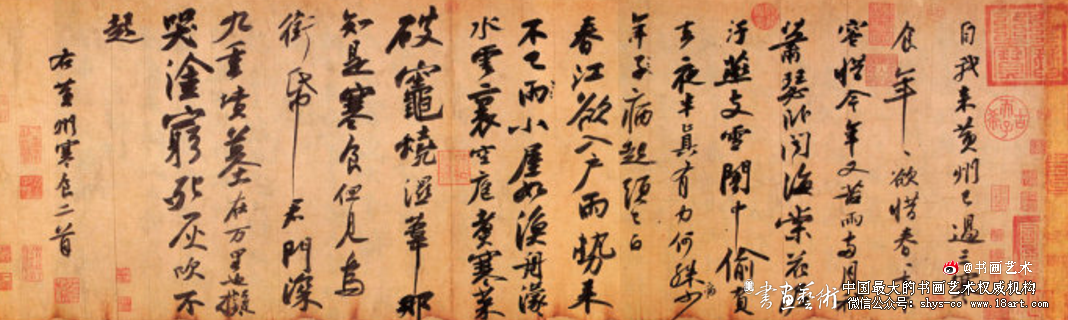 自我来黄州已過三寒
食年〻欲惜春〻去不
容惜今年又苦雨兩月秋
蕭瑟卧聞海棠花泥
汙燕支雪闇中偷負
去夜半真有力何殊少
年子病起頭已白
春江欲入户雨勢来
不已雨小屋如漁舟濛〻
水雲裏空庖煮寒菜
破竈燒濕葦那
知是寒食但見烏
銜帋君門深
九重墳墓在万里也擬
哭塗窮死灰吹不
起
右黄州寒食二首
@书画艺术
書画藝術
中国最大的书画艺术权威机构
微信公众号:shys-cc www.18art.com